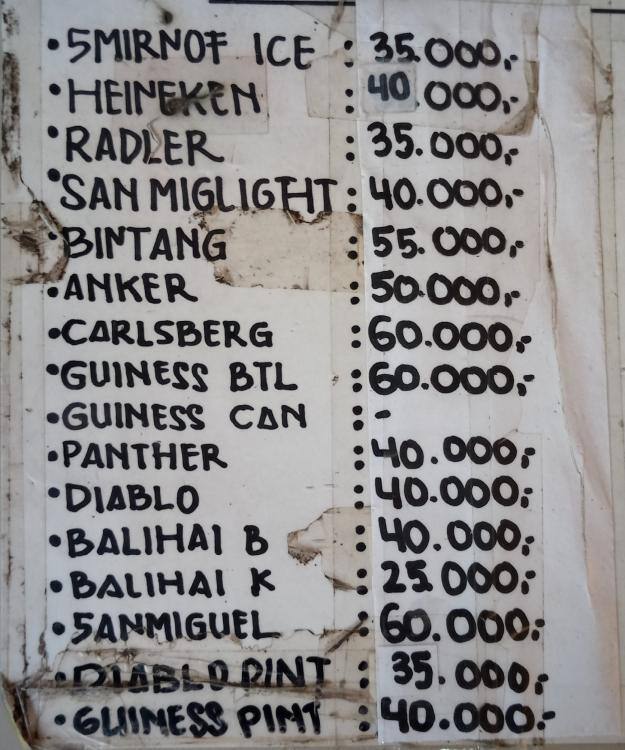 • SMIRNOF ICE : 35.000,-
• HEINEKEN : 40.000,-
• RADLER : 35.000,-
• SAN MIGLIGHT : 40.000,-
• BINTANG : 55.000,-
• ANKER : 50.000,-
• CARLSBERG : 60.000,-
• GUINESS BTL : 60.000,-
• GUINESS CAN : -
• PANTHER : 40.000,-
• DIABLO : 40.000,-
• BALIHAI B : 40.000,-
• BALIHAI K : 25.000,-
• SANMIGUEL : 60.000,-
• DIABLO PINT : 35.000,-
• GUINESS PINT : 40.000,-